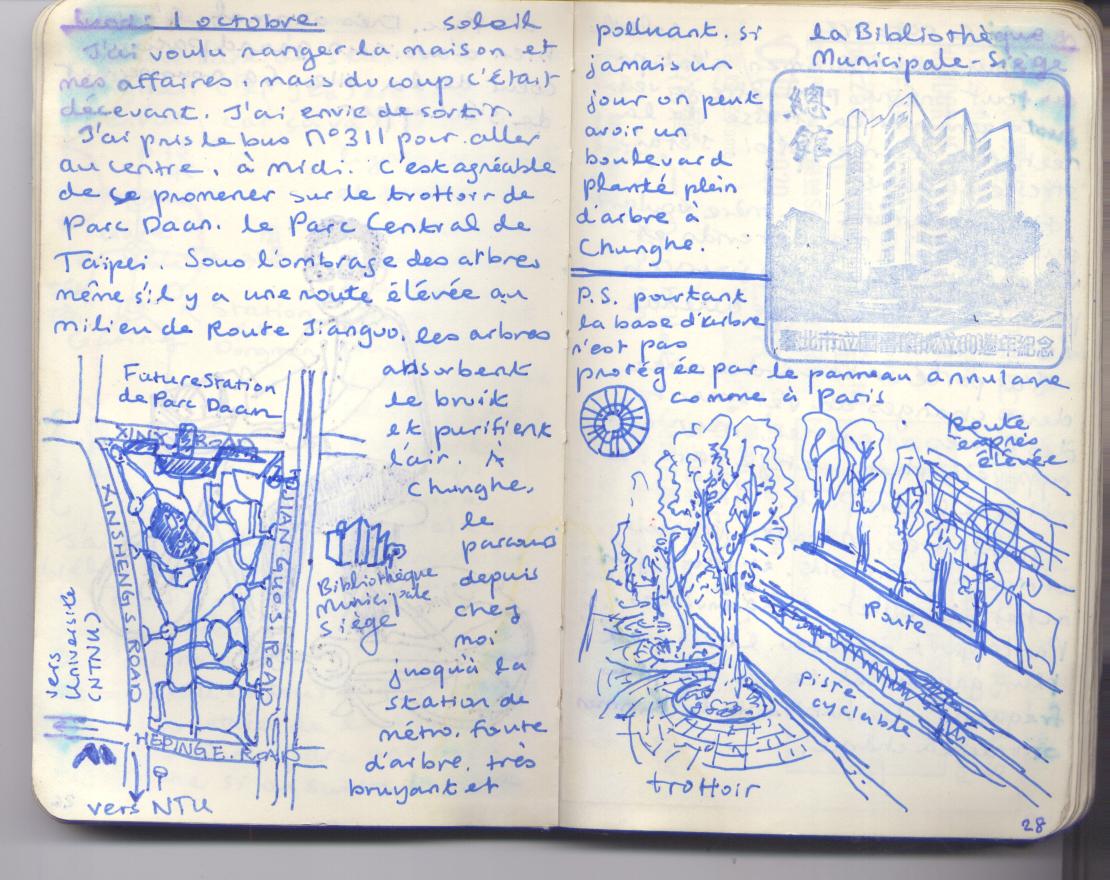 lundi 1 octobre soleil
J'ai voulu ranger la maison et
mes affaires, mais du coup c'était
décevant. J'ai envie de sortir.
J'ai pris le bus N°311 pour aller
au centre, à midi. C'est agréable
de se promener sur le trottoir de
Parc Daan. le Parc Central de
Taïpei. Sous l'ombrage des arbres
même s'il y a une route élévée au
milieu de Route Jianguo. les arbres
absorbent
le bruit
et purifient
l'air. À
Chunghe,
le
parcours
depuis
chez
moi
jusqu'à la
station de
métro. faute
d'arbre, très
bruyant et
Future Station
de Parc Daan
XINYI ROAD
XINSHENG S. ROAD
JIANGUO S. ROAD
HEPING E. ROAD
Bibliothèque
Municipale
siège
vers
Université
(NTNU)
vers NTU
polluant. si
jamais un
jour on peut
avoir un
boulevard
planté plein
d'arbre à
Chunghe.
la Bibliothèque
Municipale-Siège
總館
臺北市立圖書館成立60週年紀念
P.S. pourtant
la base d'arbre
n'est pas
protégée par le panneau annulaire
comme à Paris
Route
exprés
élévée
Route
piste
cyclable
trottoir
28